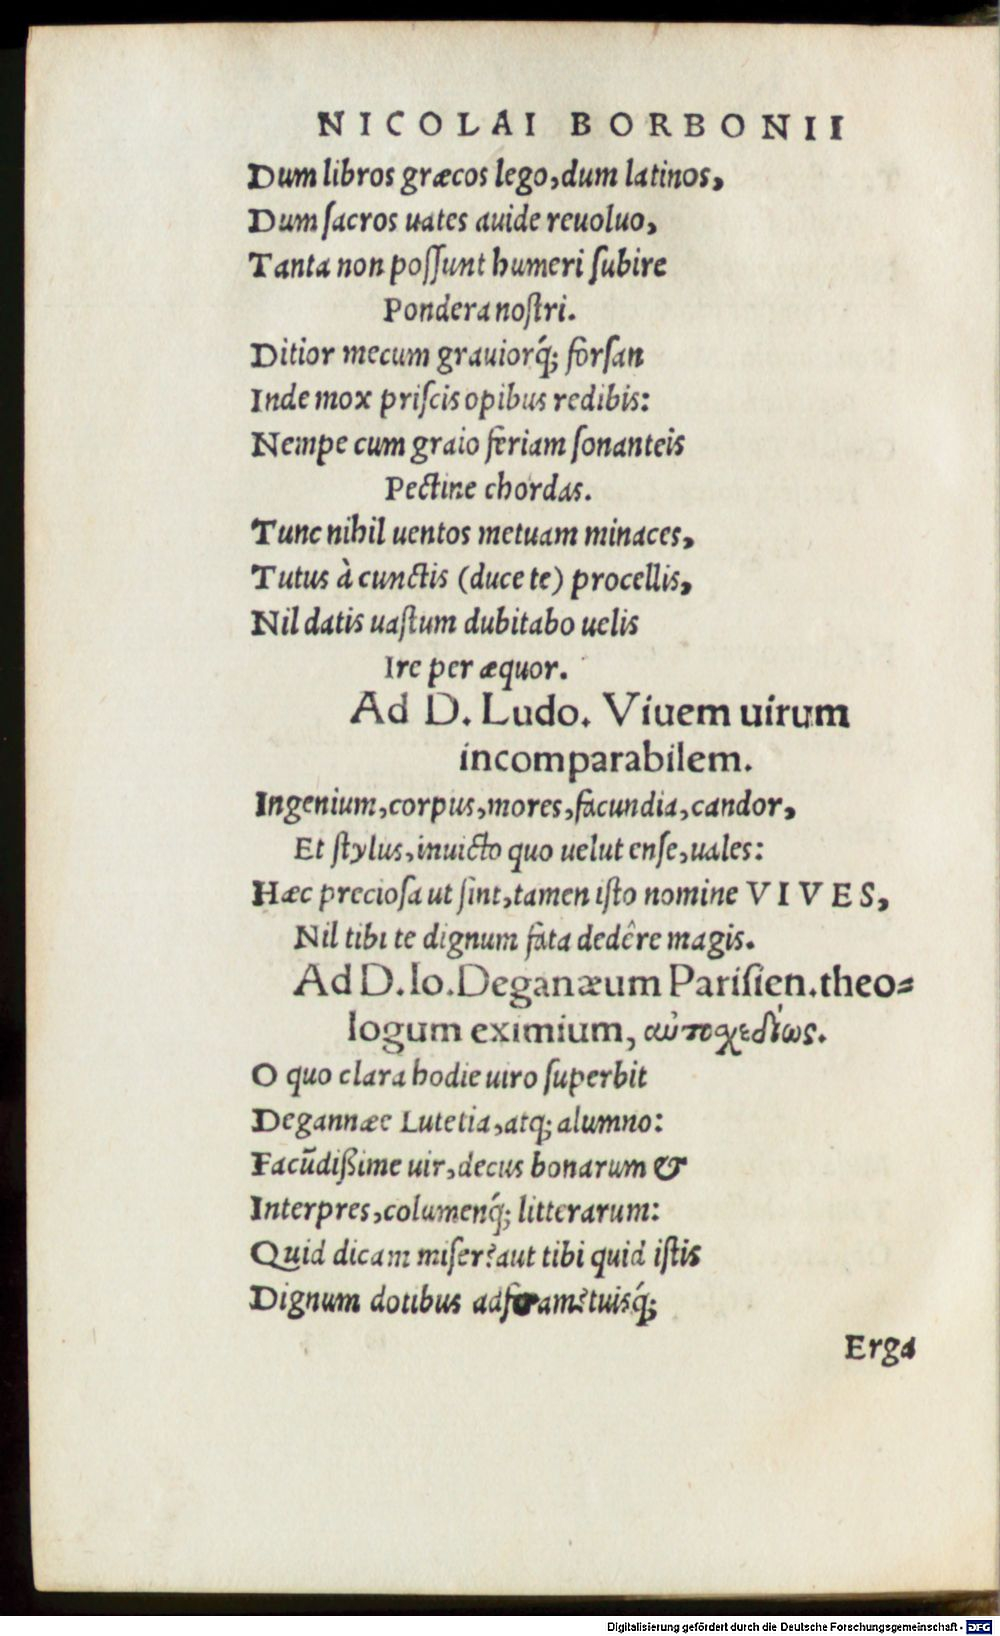 NICOLAI BORBONII
Dum libros græcos lego, dum latinos,
Dum ſacros uates auide reuoluo,
Tanta non poſſunt humeri ſubire
Pondera noſtri.
Ditior mecum grauiorq́; forſan
Inde mox priſcis opibus redibis:
Nempe cum graio feriam ſonanteis
Pectine chordas.
Tunc nihil uentos metuam minaces,
Tutus à cunctis (duce te) procellis,
Nil datis uaſtum dubitabo uelis
Ire per æquor.
Ad D. Ludo. Viuem uirum
incomparabilem.
Ingenium, corpus, mores, facundia, candor,
Et ſtylus, inuicto quo uelut enſe, uales:
Hæc precioſa ut ſint, tamen iſto nomine VIVES,
Nil tibi te dignum fata dedêre magis.
Ad D. Io. Deganæum Pariſien. theo-
logum eximium, αὐτοσχεδίως.
O quo clara hodie uiro ſuperbit
Degannæe Lutetia, atq; alumno:
Facūdißime uir, decus bonarum &
Interpres, columenq́; litterarum:
Quid dicam miſer? aut tibi quid iſtis
Dignum dotibus adferam? tuisq́;
Erga
Digitalisierung gefördert durch die Deutsche Forschungsgemeinschaft - DFG